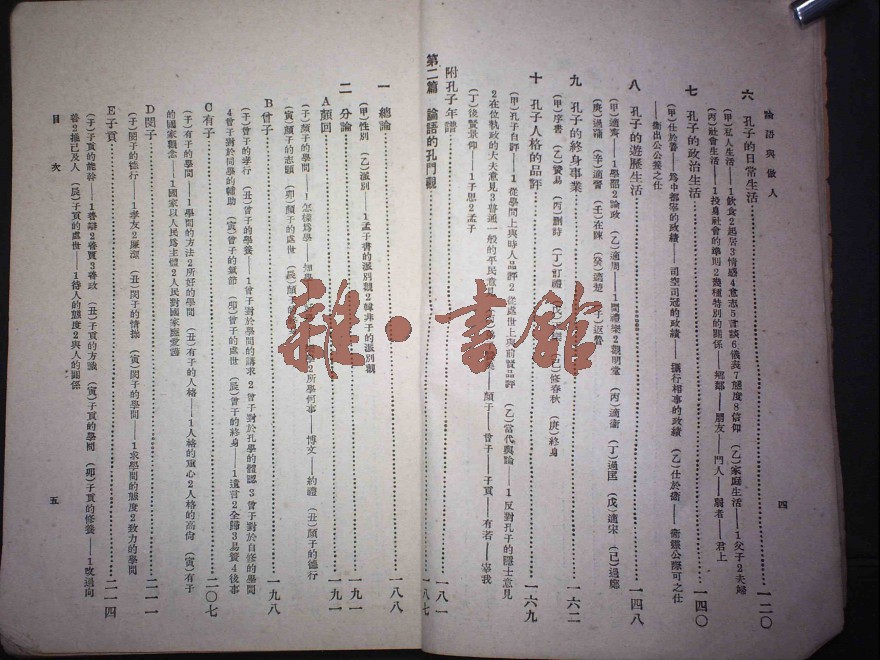 論語與做人
四
六 孔子的日常生活 一二〇
(甲)私人生活——1飲食2起居3情感4意志5言談6儀表7態度8信仰 (乙)家庭生活——1父子2夫婦
(丙)社會生活——1投身社會的準則2幾種特別的關係——鄉鄰——朋友——門人——君上
七 孔子的政治生活 一四〇
(甲)仕於魯——爲中都宰的政績——司空司寇的政績——攝行相事的政績 (乙)仕於衞——衞靈公際可之仕
——衞出公公養之仕
八 孔子的遊歷生活 一四八
(甲)適齊——1學韶2論政 (乙)適周——1問禮樂2觀明堂 (丙)適衞 (丁)過匡 (戊)適宋 (己)過鄭
(庚)過蒲 (辛)適晉 (壬)在陳 (癸)適楚 (子)返魯
九 孔子的終身事業 一六二
(甲)序書 (乙)贊易 (丙)刪詩 (丁)訂禮 (己)修春秋 (庚)終身
十 孔子人格的品評 一六九
(甲)孔子自評——1從學問上與時人品評2從處世上與前賢品評 (乙)當代輿論——1反對孔子的隱士意見
2在位執政的大夫意見3普通一般的平民意見 顏子——曾子——子貢——有若——宰我
(丁)後賢景仰——1子思2孟子
附孔子年譜 一八一
第二篇 論語的孔門觀 一八七
一 總論 一八八
(甲)性別 (乙)派別——1孟子書的派別觀2韓非子的派別觀
二 分論 一九一
A顏回 一九一
(子)顏子的學問——1怎樣爲學 2所學何事——博文——約禮 (丑)顏子的德行
(寅)顏子的志願 (卯)顏子的處世 (辰)顏子的
B曾子 一九八
(子)曾子的孝行 (丑)曾子的學養——1曾子對於學問的講求2曾子對於孔學的體認3曾子對於自修的學問
4曾子對於同學的輔助 (寅)曾子的氣節 (卯)曾子的處世 (辰)曾子的終身——1遺言2全歸3易簀4後事
C有子 二〇七
(子)有子的學問——1學問的方法2所好的學問 (丑)有子的人格——1人格的重心2人格的高偉 (寅)有子
的國家觀念——1國家以人民爲主體2人民對國家應愛護
D閔子 二一一
(子)閔子的德行——1孝友2廉潔 (丑)閔子的情操 (寅)閔子的學問——1求學問的態度2致力的學問
E子貢 二一四
(子)子貢的能幹——1善辯2善賈3善政 (丑)子貢的方識 (寅)子貢的學問 (卯)子貢的修養——1改過向
善2推己及人 (辰)子貢的處世——1待人的態度2與人的關係
目次
五
雜·書館